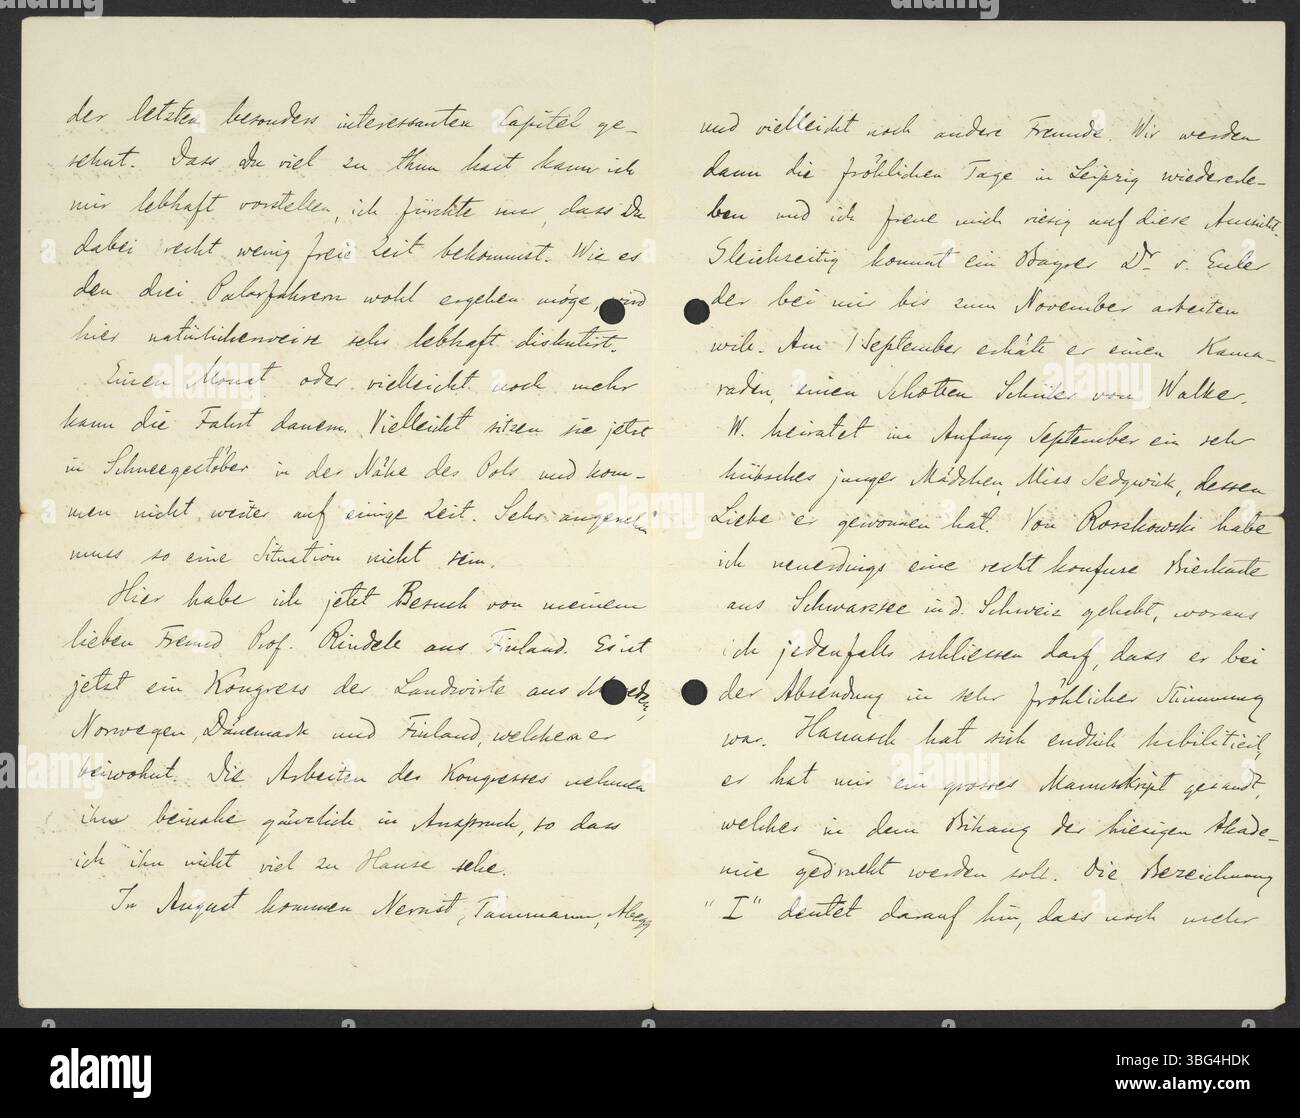 der letzten besonders interessanten Capitel ge-
sehnt. Dass Du viel zu thun hast kann ich
mir lebhaft vorstellen, ich fürchte nur, dass Du
dabei recht wenig freie Zeit bekommst. Wie es
den drei Polarfahrern wohl ergehen möge, wird
hier natürlicherweise sehr lebhaft diskutirt.
Einen Monat oder vielleicht noch mehr
kann die Fahrt dauern. Vielleicht sitzen sie jetzt
in Schneegestöber in der Nähe des Pols und kom-
men nicht weiter auf einige Zeit. Sehr angenehm
muss so eine Situation nicht sein.
Hier habe ich jetzt Besuch von meinem
lieben Freund Prof. Rindell aus Finland. Es ist
jetzt ein Kongress der Landwirte aus Schweden,
Norwegen, Dänemark und Finland, welchem er
beiwohnt. Die Arbeiten des Kongresses nehmen
ihn beinahe gänzlich in Anspruch, so dass
ich ihn nicht viel zu Hause sehe.
In August kommen Nernst, Tammann, Abegg
und vielleicht noch andere Freunde. Wir werden
dann die fröhlichen Tage in Leipzig wiedererle-
ben und ich freue mich riesig auf diese Aussicht.
Gleichzeitig kommt ein Bayrer Dr. v. Euler
der bei mir bis zum November arbeiten
will. Am 1 September erhält er einen Kama-
raden, einen Schotten Schüler von Walker.
W. heiratet im Anfang September ein sehr
hübsches junges Mädchen, Miss Sedgwick, dessen
Liebe er gewonnen hat. Von Roszkowski habe
ich neuerdings eine recht konfuse Bierkarte
aus Schwarzsee in d. Schweiz gehabt, woraus
ich jedenfalls schliessen darf, dass er bei
der Absendung in sehr fröhlicher Stimmung
war. Hantzsch hat sich endlich habilitirt,
er hat mir ein grosses Manuskript gesandt,
welches in dem Bihang der hiesigen Akade-
mie gedruckt werden soll. Die Bezeichnung
"I" deutet darauf hin, dass noch mehr
alamy
Image ID: 3BG4HDK
www.alamy.com